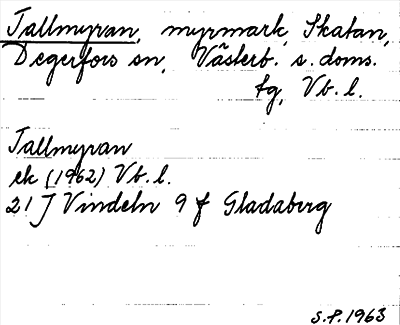 Tallmyran, myrmark, Skatan,
Degerfors sn, Västerb. s. doms.
tg, Vb. l.
Tallmyran
ek (1962) Vb. l.
21 J Vindeln 9 f Gladaberg
S.P. 1963